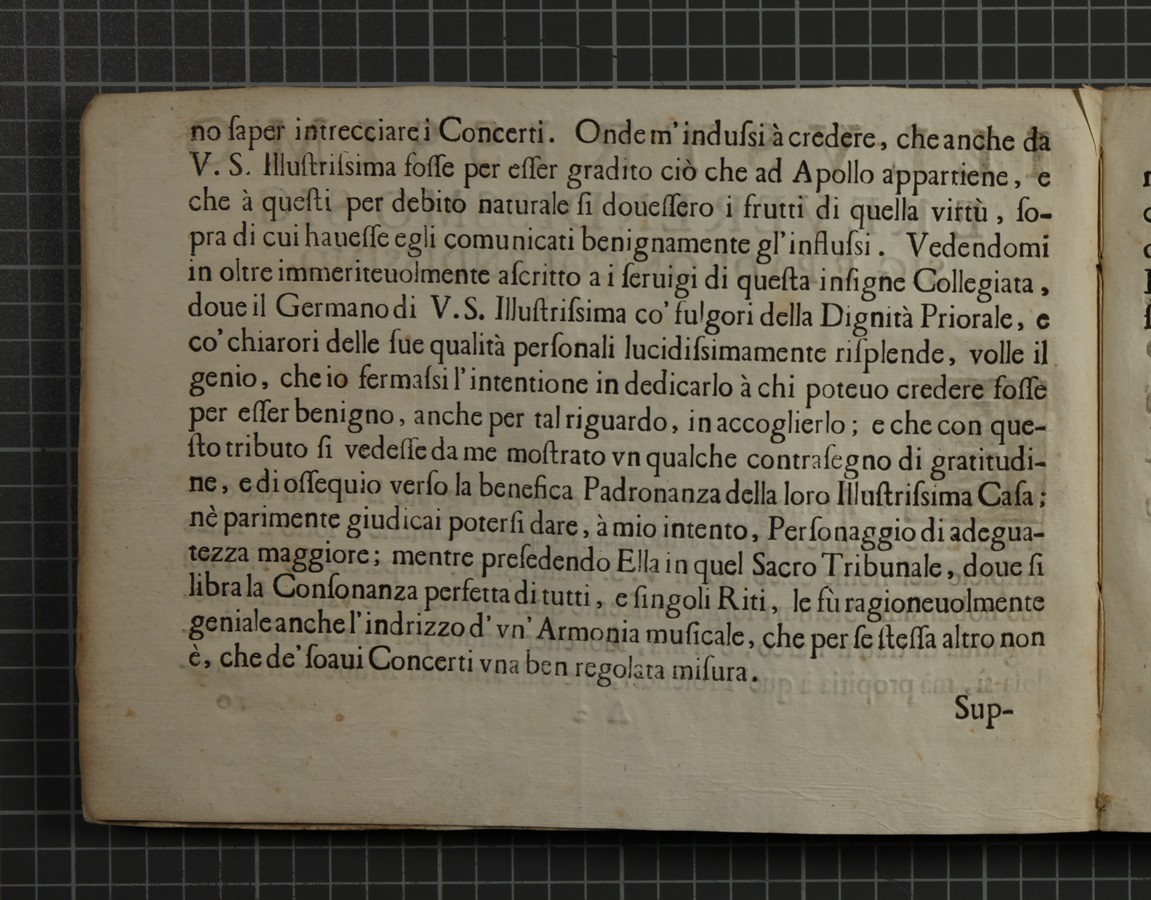 no ſaper intrecciare i Concerti. Onde m' induſsi à credere, che anche da
V. S. Illuſtriſsima foſſe per eſſer gradito ciò che ad Apollo appartiene, e
che à queſti per debito naturale ſi doueſſero i frutti di quella virtù, ſo-
pra di cui haueſſe egli comunicati benignamente gl' influſsi. Vedendomi
in oltre immeriteuolmente aſcritto a i ſeruigi di queſta inſigne Collegiata,
doue il Germano di V. S. Illuſtriſsima co' fulgori della Dignità Priorale, e
co' chiarori delle ſue qualità perſonali lucidiſsimamente riſplende, volle il
genio, che io fermaſsi l' intentione in dedicarlo à chi poteuo credere foſſe
per eſſer benigno, anche per tal riguardo, in accoglierlo; e che con que-
ſto tributo ſi vedeſſe da me moſtrato vn qualche contraſegno di gratitudi-
ne, e di oſſequio verſo la benefica Padronanza della loro Illuſtriſsima Caſa;
nè parimente giudicai poterſi dare, à mio intento, Perſonaggio di adegua-
tezza maggiore; mentre preſedendo Ella in quel Sacro Tribunale, doue ſi
libra la Conſonanza perfetta di tutti, e ſingoli Riti, le fù ragioneuolmente
geniale anche l' indrizzo d' vn' Armonia muſicale, che per ſe ſteſſa altro non
è, che de' ſoaui Concerti vna ben regolata miſura.
Sup-